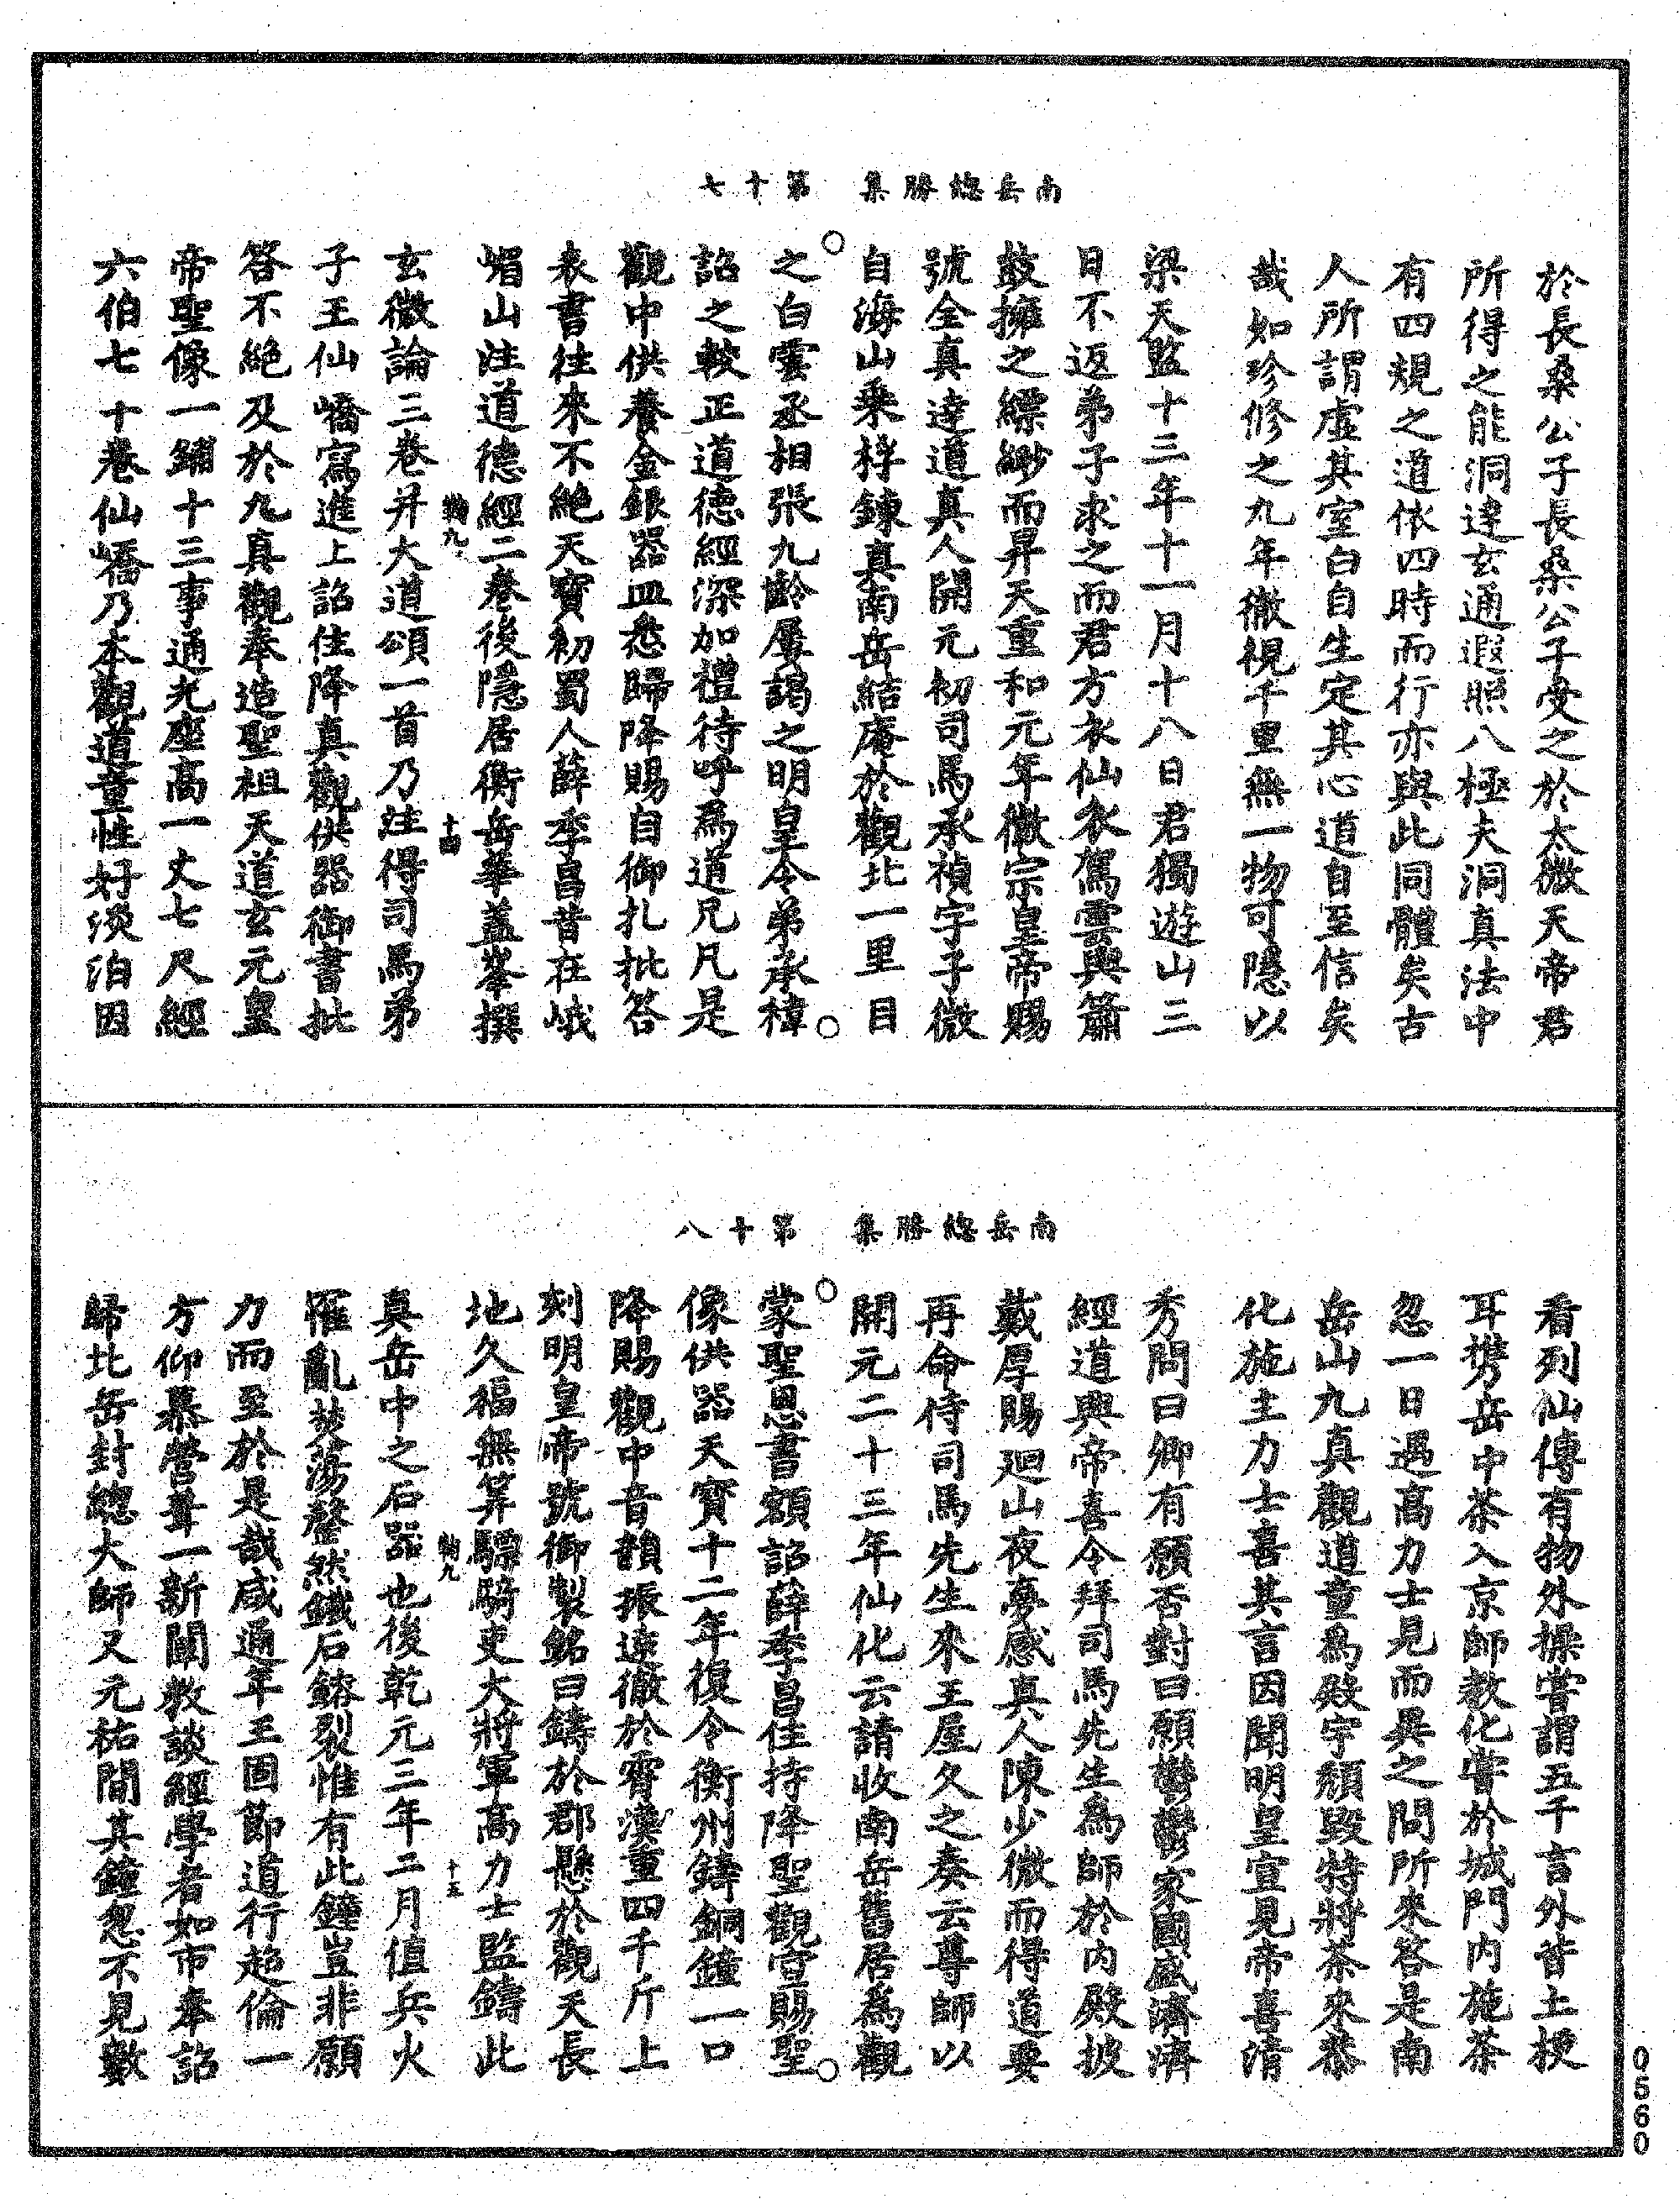 南岳總勝集　第十七
於長桑公子長桑公子受之於太微天帝君
所得之能洞達玄通遐照八極夫洞真法中
有四規之道依四時而行亦與此同體矣古
人所謂虛其室白自生定其心道自至信矣
哉如珍修之九年徹視千里無一物可隱以
梁天監十三年十一月十八日君獨遊山三
日不返弟子求之而君方衣仙衣駕雲輿簫
鼓擁之縹緲而昇天重和元年徽宗皇帝賜
號全真達道真人開元初司馬承禎字子微
自海山乘桴鍊真南岳結庵於觀北一里目
之白雲丞相張九齡屢謁之明皇令弟承禕
詔之較正道德經深加禮待呼為道兄凡是
觀中供養金銀器皿悉歸降賜自御札批答
表書往來不絕天寶初蜀人薛季昌昔在峨
嵋山注道德經二卷後隱居衡岳華蓋峯撰
物九　十四
玄微論三卷并大道頌一首乃注得司馬弟
子王仙嶠寫進上詔住降真觀供器御書批
答不絕及於九真觀奉造聖祖天道玄元皇
帝聖像一鋪十三事通光座高一丈七尺經
六伯七十卷仙嶠乃本觀道童性好淡泊因
南岳總勝集　第十八
看列仙傳有物外操嘗謂五千言外皆土梗
耳携岳中茶入京師教化嘗於城門内施茶
忽一日遇高力士見而異之問所來答是南
岳山九真觀道童為殿宇頹毀特將茶來恭
化施主力士喜其言因聞明皇宣見帝喜清
秀問曰卿有願否對曰願鬱鬱家國盛濟濟
經道興帝喜令拜司馬先生為師於内殿披
戴厚賜迴山夜夢感真人陳少微而得道要
再命侍司馬先生來王屋久之奏云尊師以
開元二十三年仙化云請收南岳舊居為觀
蒙聖恩書額詔薛季昌住持降聖觀宣賜聖
像供器天寶十二年復令衡州鑄銅鐘一口
降賜觀中音韻振遠徹於霄漢重四千斤上
刻明皇帝號御製銘曰鑄於郡懸於觀天長
地久福無筭驃騎吏大將軍高力士監鑄此
物九　十五
真岳中之石器也後乾元三年二月值兵火
罹亂焚蕩罄然鐵石鎔裂惟有此鐘豈非願
力而至於是哉咸通年王固節道行超倫一
方仰慕營葺一新闡教談經學者如市奉詔
歸北岳封總大師又元祐間其鐘忽不見數
0560